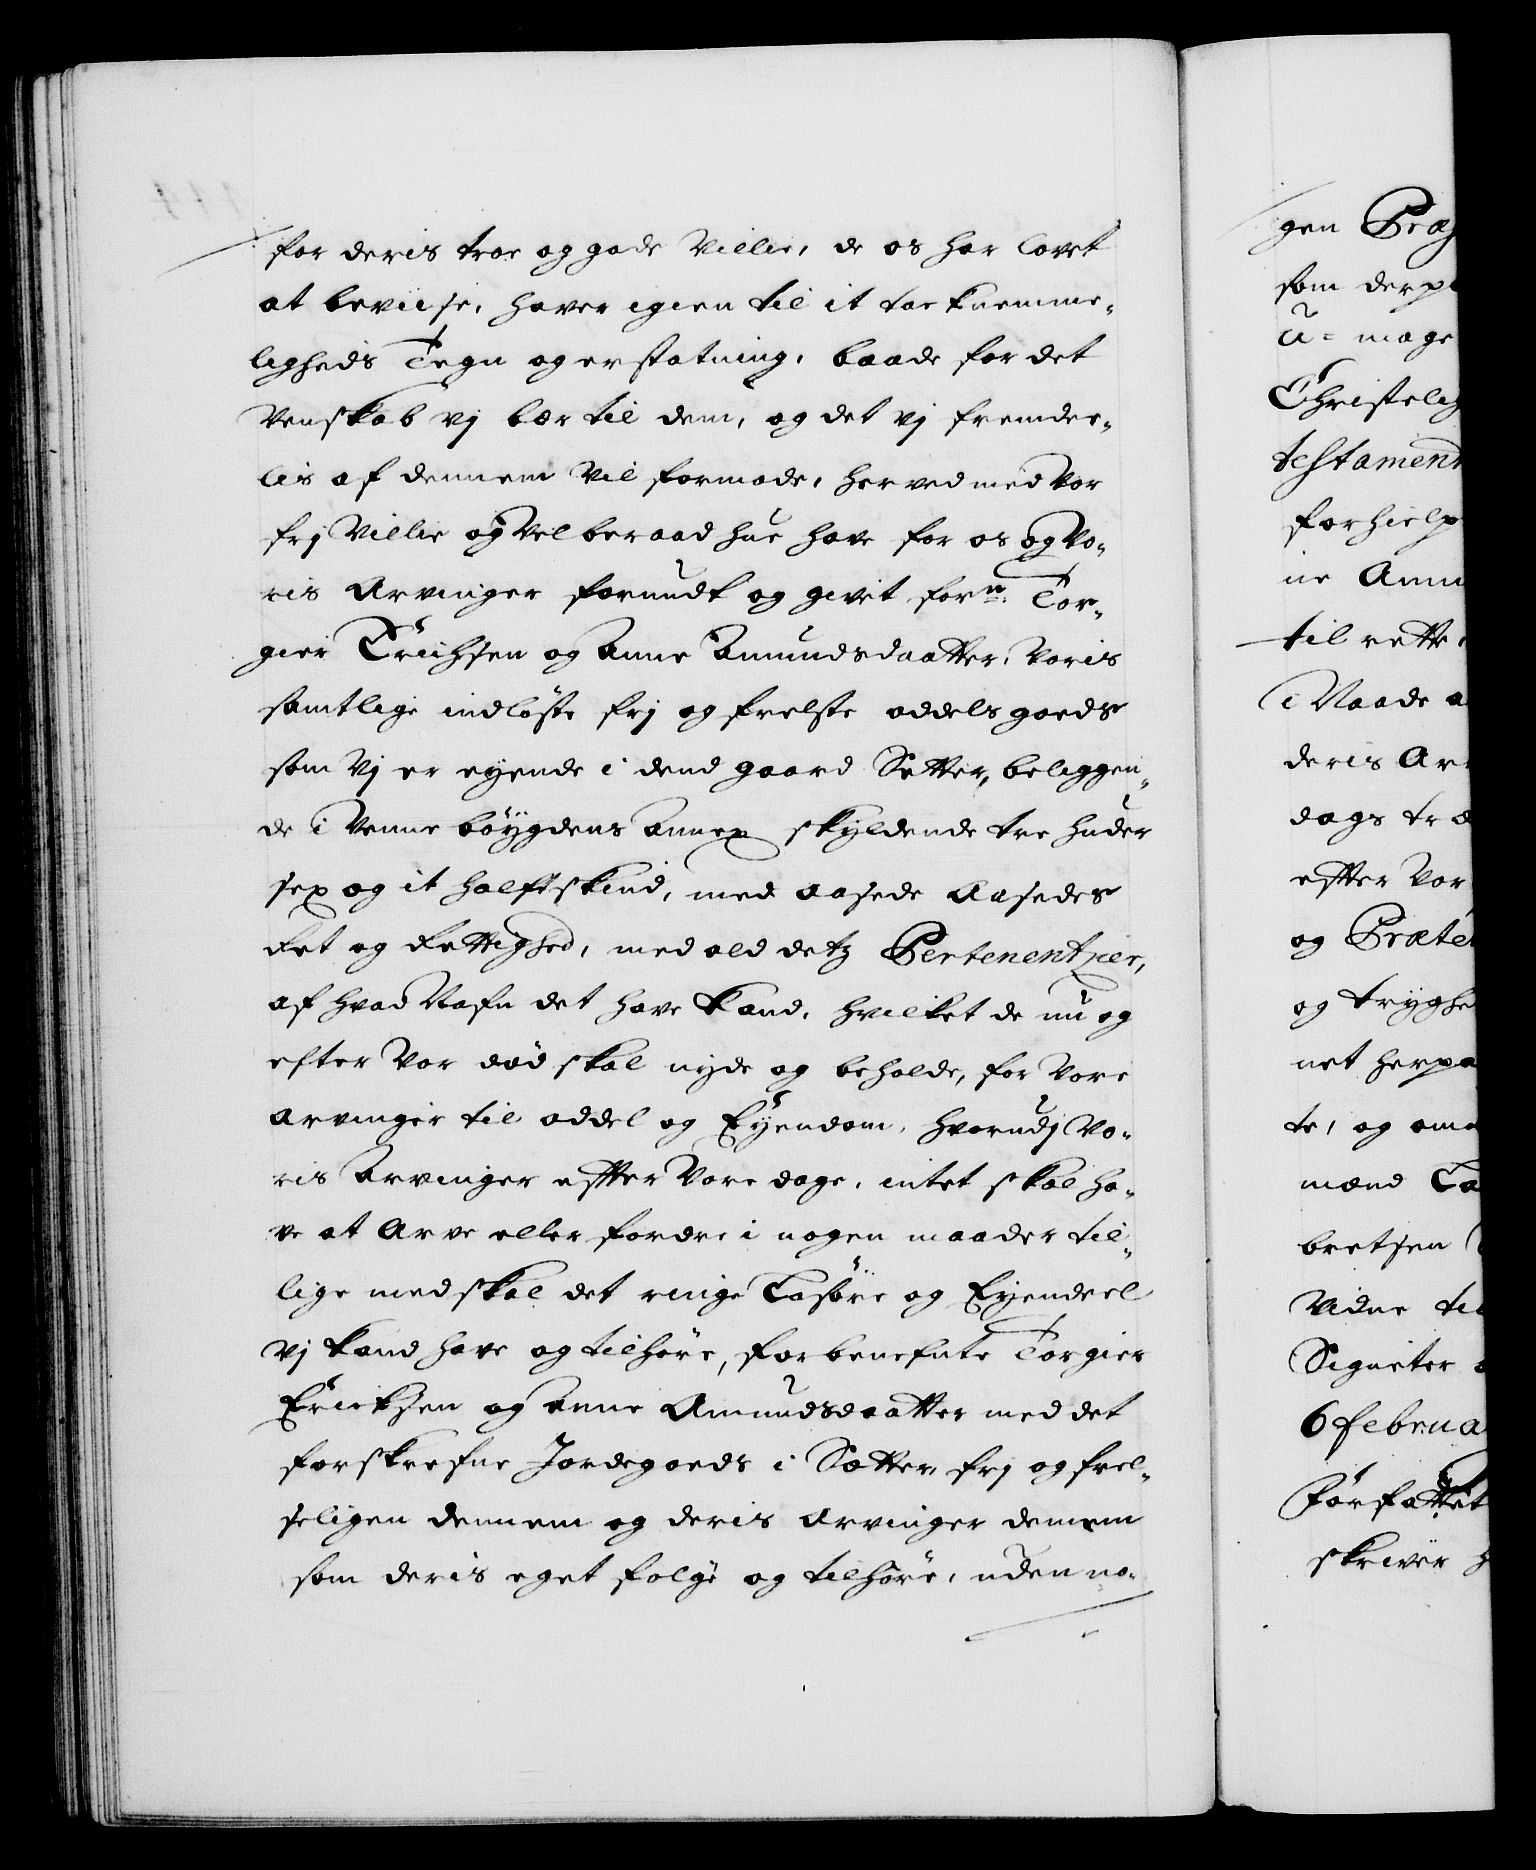 for deris troe og gode Villie, de os har lovet
at beviise, haver igien til it tacknemme-
ligheds Tegn og erstatning, baade for det
Venskab vj bær til dem, og det vj fremde-
lis af dennem vil formode, her ved med vor
frj Villie og Vel beraad hue have for os og Vo-
ris Arvinger forundt og givet forn: Tor-
gier Erichsen og Anne Amundsdaatter, Voris
samtlige indløste frj og frelste oddels goeds
som Vj er eyende i dend gaard Setter, beliggen-
de i Venne bøygdens Annex skyldende tre huder
sex og it halft skind, med aasede Aasedes
Ret og Rettighed, med ald detz Pertenentzier,
af hvad Nafn det have kand, hvilket de nu og
efter Vor død skal nyde og beholde, for Vore
arvinger til oddel og Eyendom, hvorudj Vo-
ris Arvinger efter Vore dage, intet skal ha-
ve at Arve eller fordre i nogen maader til-
lige med skal det ringe Løsøre og Eyendeel
Vj kand have og tilhøre, forbenefnte Torgier
Ericksen og Anne Amundsdaatter med det
forskrefne Jordegoeds i Sætter, frj og frel-
seligen dennem og deris Arvinger dennem
som deris eget følge og tilhøre, uden no-
gen
som
u-mage
testament
forhielp
til rette
i Naade
deris
dags
efter Vor
og
og
net
te, og
mænd
bretsen
Vidne
Signeter
6 februa
forfattet
skriver